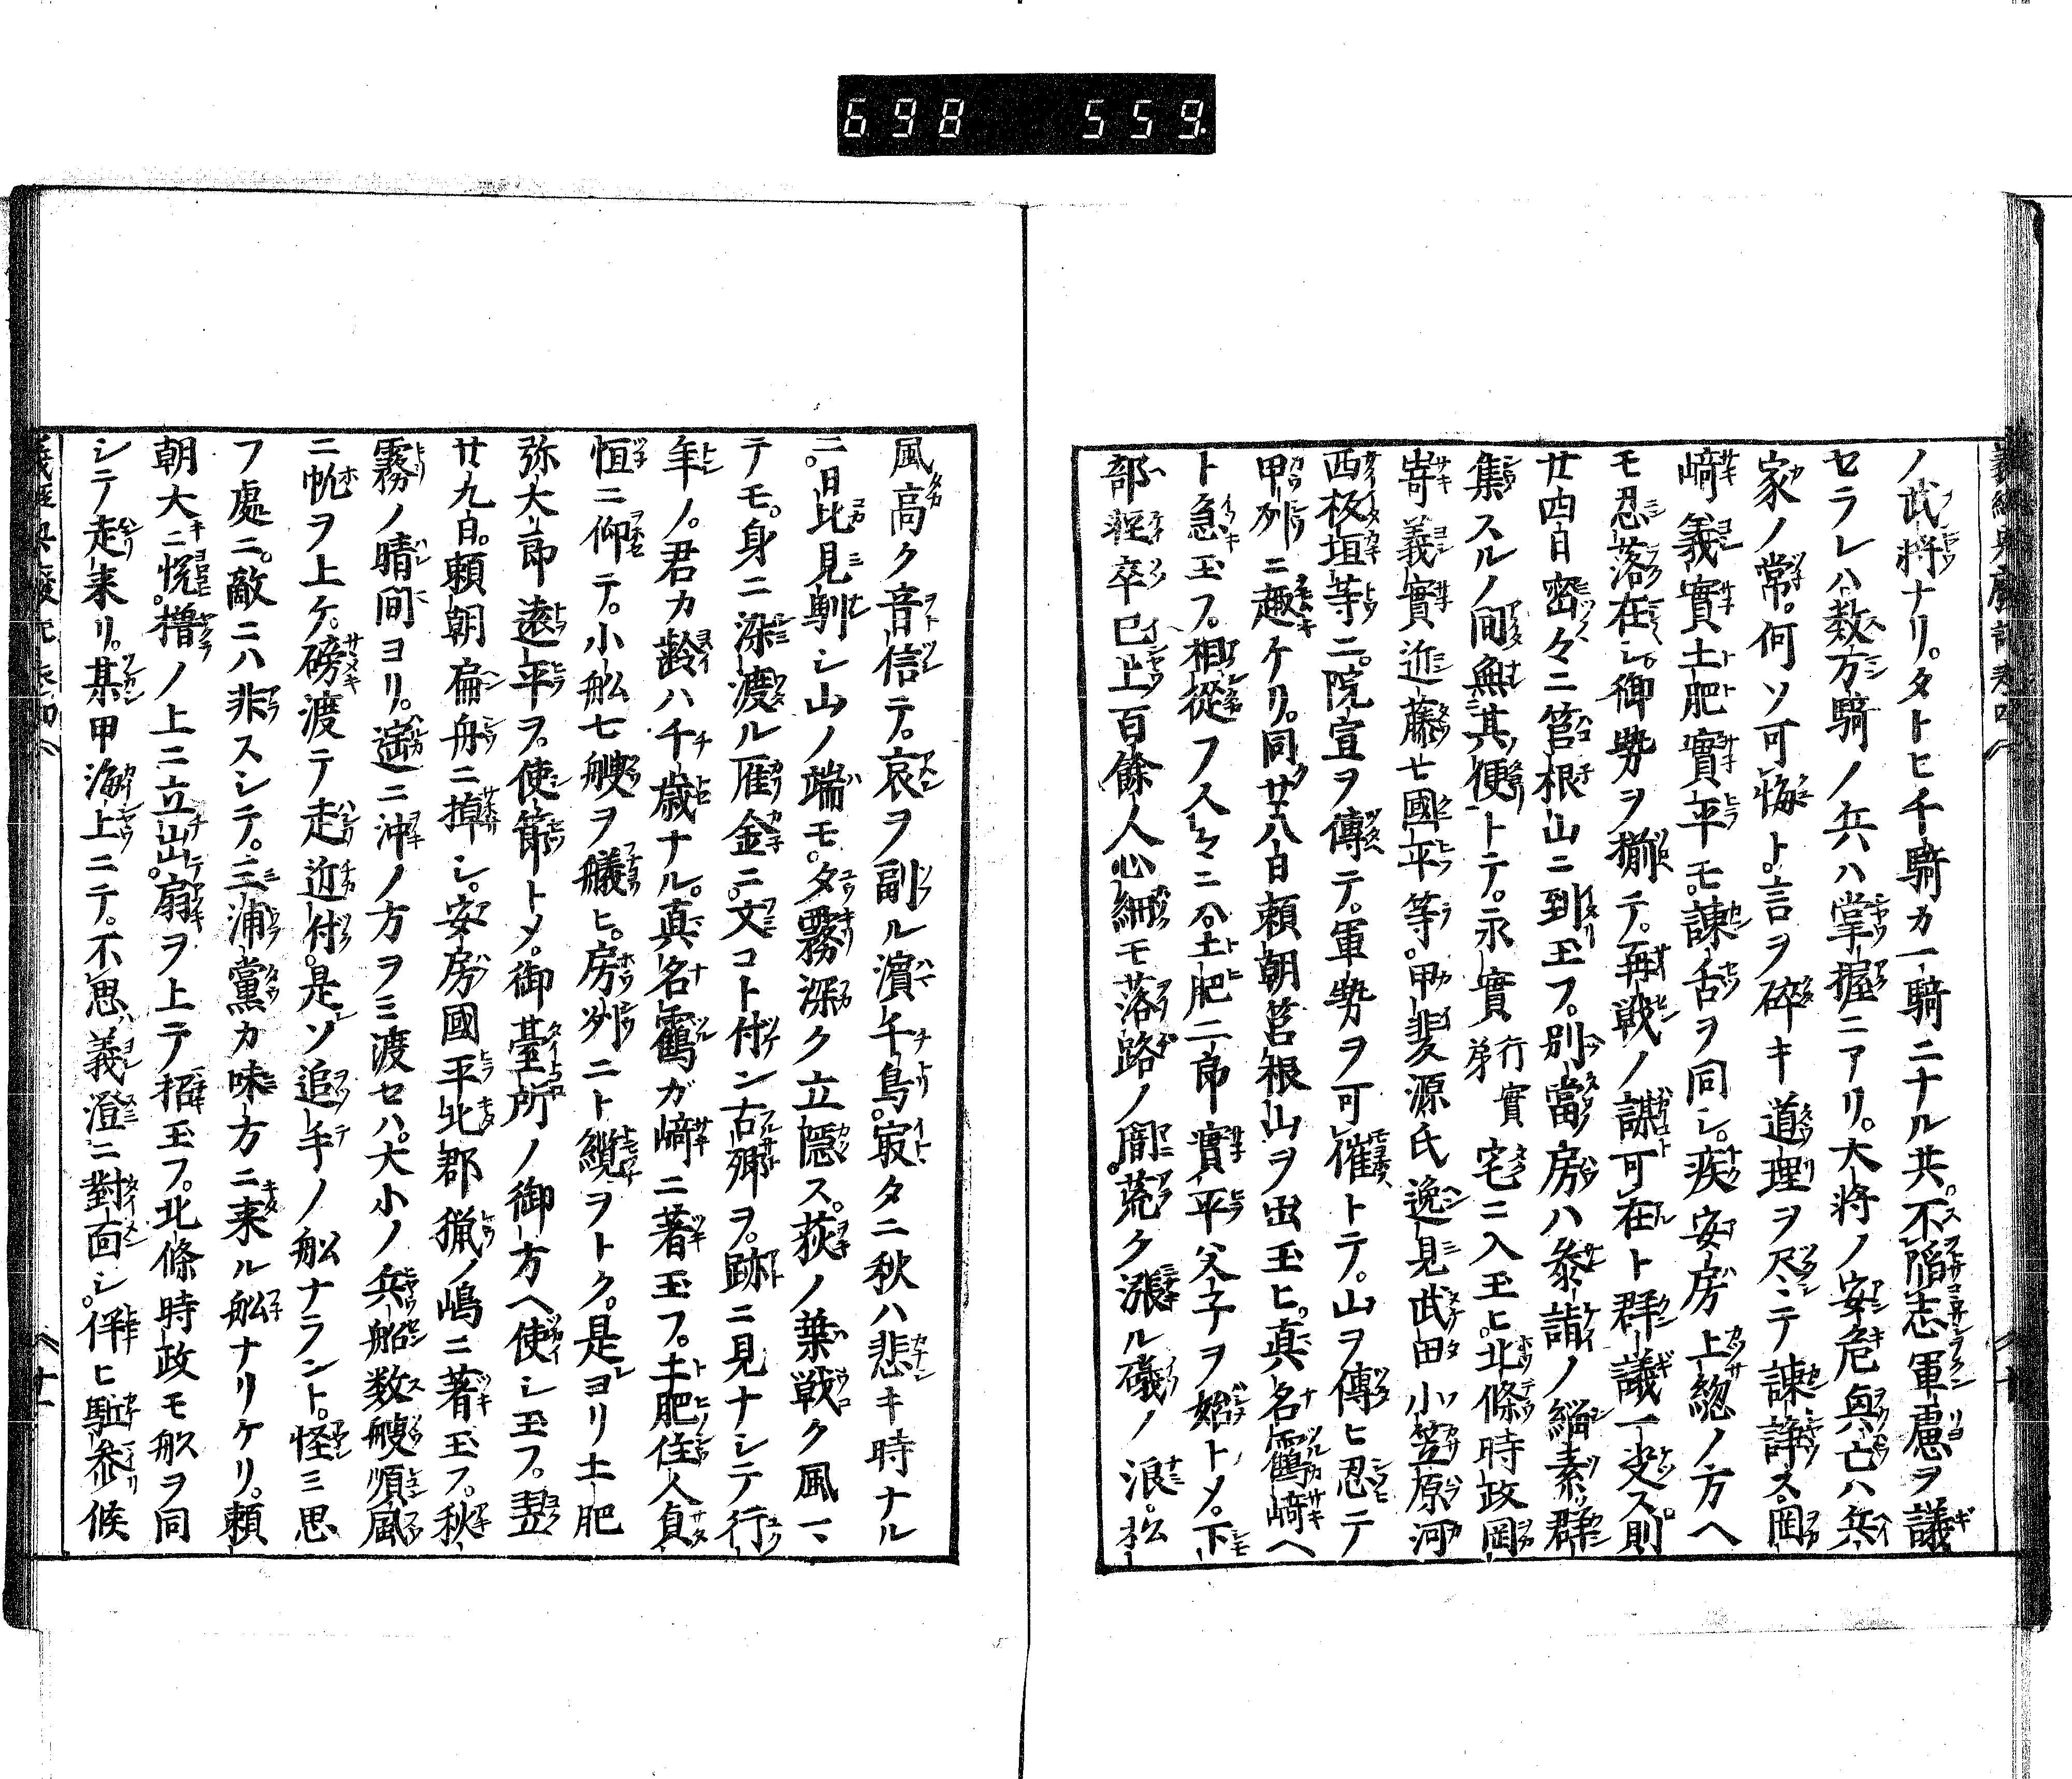 698 559
ノ武将ナリ。タトヒ千騎カ一騎ニナル共。不陥志軍慮ヲ議
セラレハ数万騎ノ兵ハ掌握ニアリ。大将ノ安危與亡ハ兵
家ノ常。何ソ可悔ト。言ヲ碎キ道理ヲ尽ミテ諫諍ス。岡
﨑義實土肥實平モ。諫舌ヲ同シ。疾安房上総ノ方ヘ
モ忍落在シ。御勢ヲ揃テ。再戦ノ謀可在ト群議一决ス則
廿四日密々ニ筥根山ニ到玉フ。別當房ハ參詣ノ緇素群
集スルノ間無其便トテ。永實行實弟宅ニ入玉ヒ。北條時政岡
嵜義實近藤七國平等。甲斐源氏逸見武田小笠原河
西板垣等ニ。院宣ヲ傳テ。軍勢ヲ可催トテ。山ヲ傳ヒ忍テ
甲列ニ趣ケリ。同廿八日頼朝筥根山ヲ出玉ヒ。真名靍﨑ヘ
ト急玉フ。相從フ人々ニハ土肥二郎實平父子ヲ始トメ。下
部軽卒已上百餘人心細モ落路ノ闇荒ク漲ル礒ノ浪。松
風高ク音信テ。哀ヲ副ル濵千鳥。寂タニ秋ハ悲キ時ナル
ニ。日比見馴シ山ノ端モ。夕霧深ク立隠ス。荻ノ葉戦ク風ニ
テモ。身ニ染渡ル雁金ニ。文コト付ン古郷ヲ。跡ニ見ナシテ行
年ノ。君カ齢ハ千歳ナル。真名靏ガ﨑ニ著玉フ。土肥住人貞
恒ニ仰テ。小舩七艘ヲ艤ヒ。房州ニト纜ヲトク。是ヨリ土肥
弥大郎遠平ヲ。使節トメ。御臺所ノ御方ヘ使シ玉フ。翌
廿九日。頼朝扁舟ニ棹シ。安房國平北郡猟ノ嶋ニ著玉フ。秋
霧ノ晴間ヨリ。遥ニ沖ノ方ヲミ渡セハ。大小ノ兵船数艘順風
ニ帆ヲ上ケ。磅渡テ走近付。是ソ追手ノ舩ナラント。怪ミ思
フ處ニ。敵ニハ非スシテ。三浦黨カ味方ニ来ル舩ナリケリ。頼
朝大ニ悦。櫓ノ上ニ立出。扇ヲ上テ招玉フ。北條時政モ舩ヲ同
シテ走来リ。某甲海上ニテ。不思義澄ニ對面シ。伴ヒ駈參候